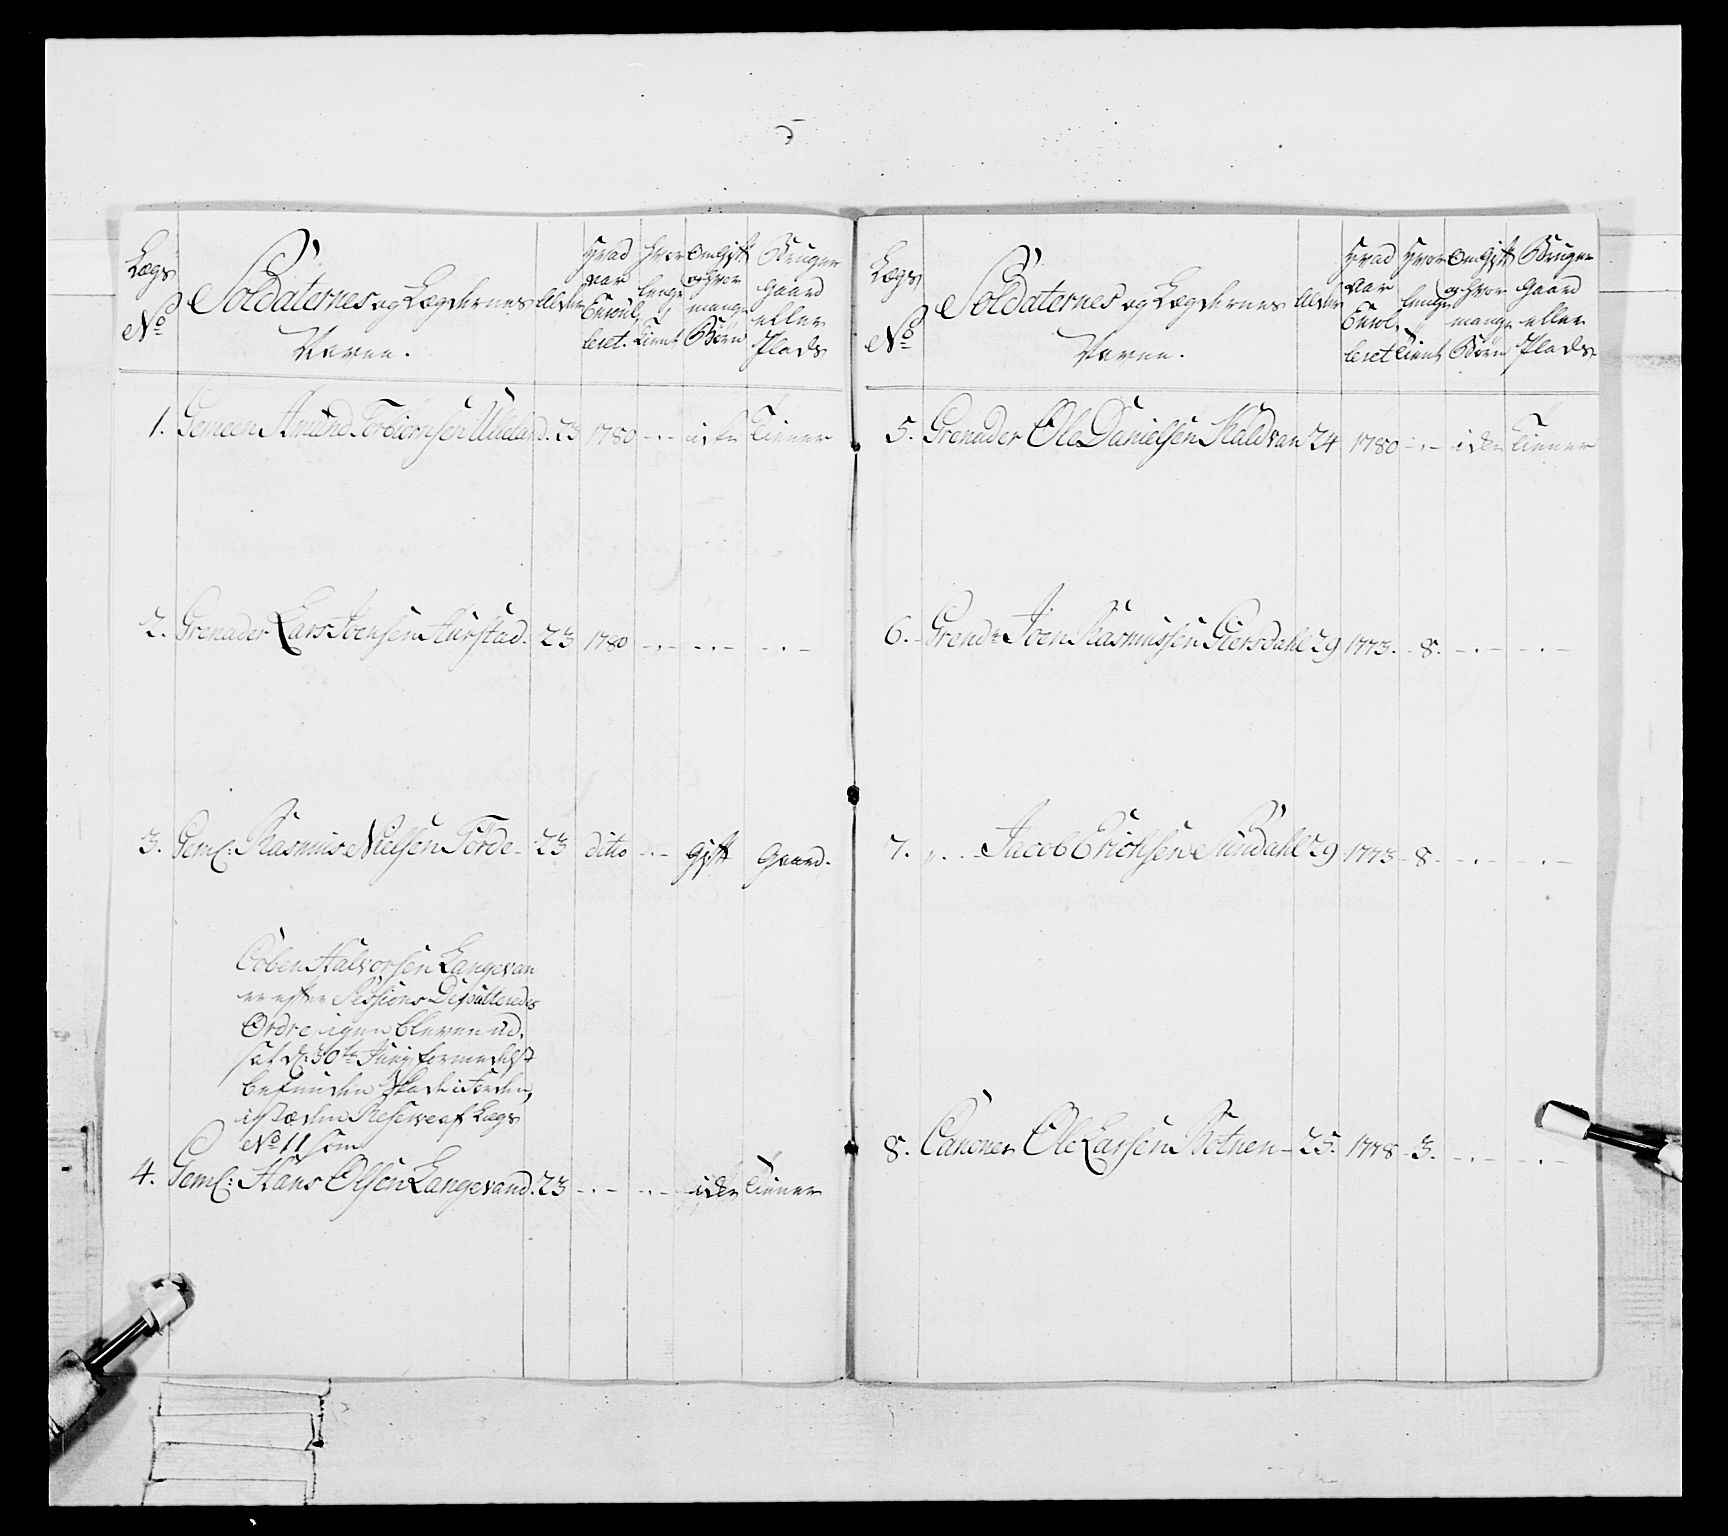 Lægs
No
Soldaternes og Lægdernes
Navne.
Alder
Hvad
aar
Enroul
leret.
Hvor
lenge
tient
Om Gift
og hvor
mange
Børn
Bruger
Gaard
eller
Plads
1. Gemeen Amund Torbiörnsen 23 1780 -.- icke Tiener
2. Grenader Lars Joensen Aurstad. 23 1780 -.- -.- -.-
3. Geml: Rasmus Nielsen Förde - 23 ditto -.- gift Gaard.
Coben Halvorsen Langevan
er efter Sessions Deputteredes
Ordre igien bleven ud,
sat d: 30te Juny formedelst
befunden Skade i
istæden Reserve af Lægs
No 11 som
4. Geml: Hans Olsen Langevand. 23 -.- -.- iden Tiener
Lægs
No
Soldaternes og Lægdernes
Navne.
Alder
Hvad
aar
Enrol,
leret
Hvor
lenge
tient
Om Gift
og hvor
mange
Børn
Bruger
Gaard
eller
Plads
5. Grenader Ole Danielsen Kaldvan 24 1780 -.- iden Tiener
6. Grendr Joen Rasmussen Giersdahl 29 1773. 8. -.- -.-
7. " - Jacob Erichsen Sundahl 29 1773 8. -.- -.-
8. Canoner Ole Larsen Botnen - 25. 1778 3. -.- -.-